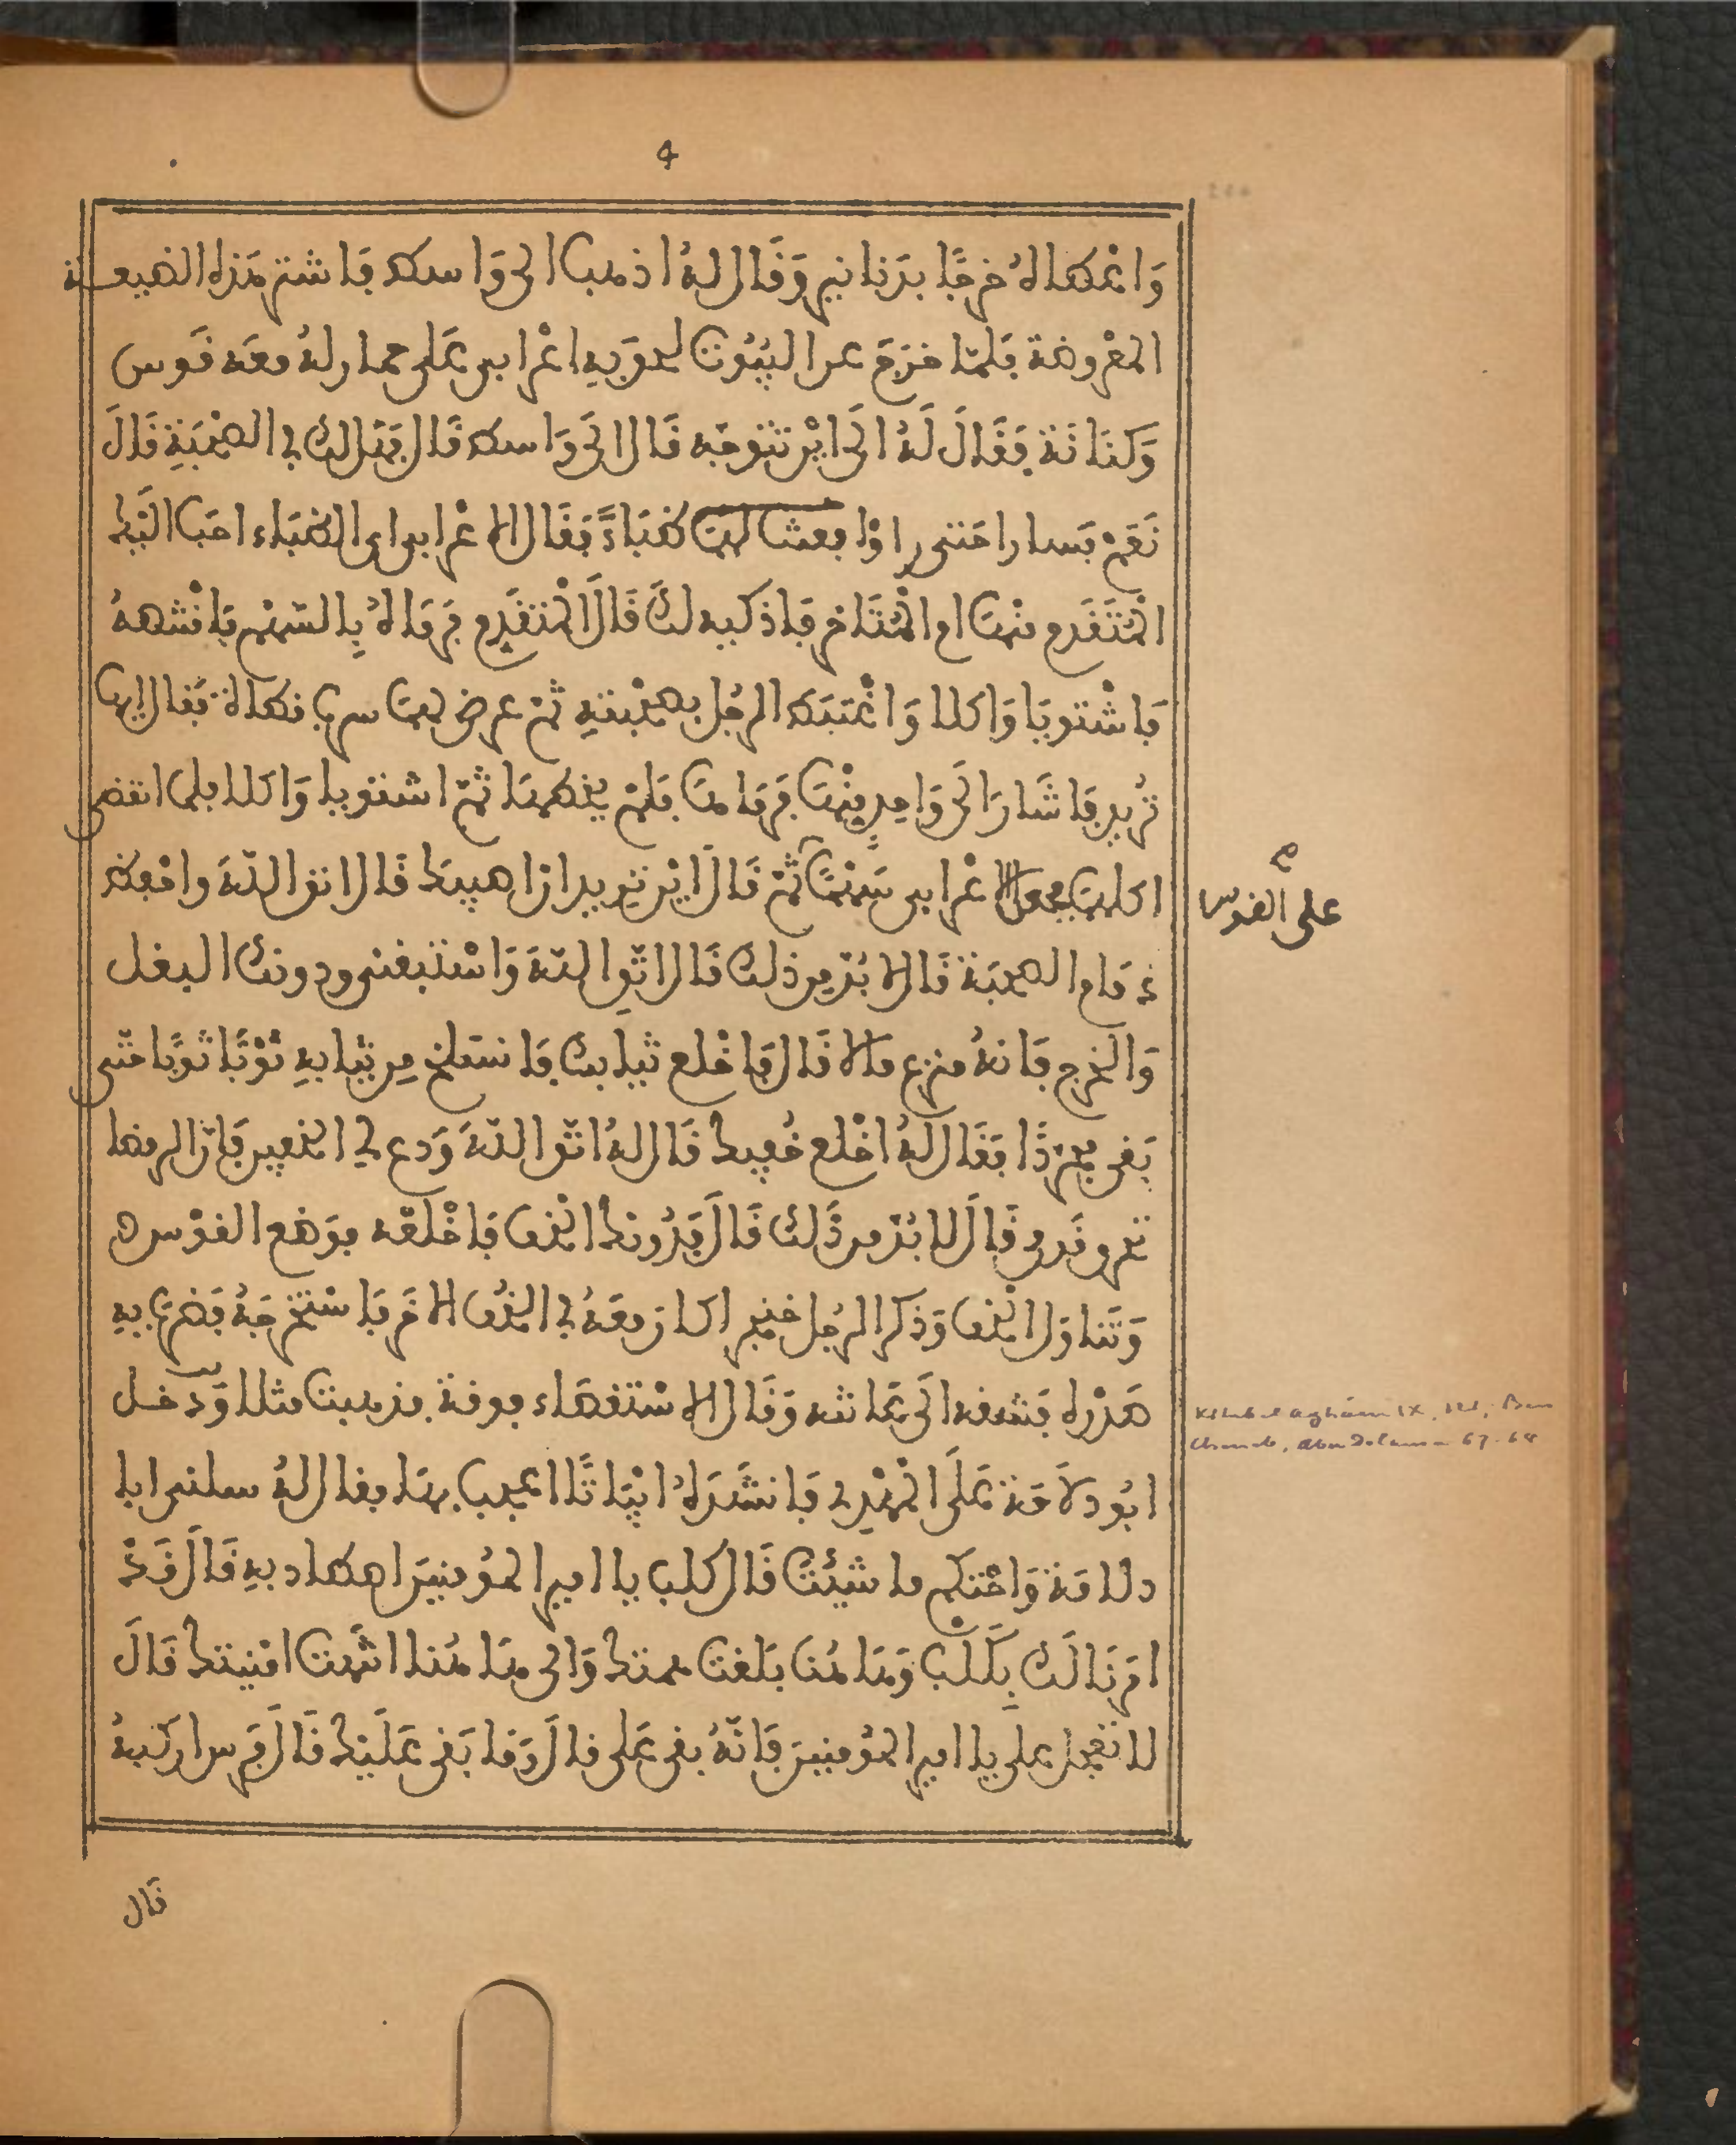 4
وَاعْطاهُ خرجًا بدَنانير وَقَال لهُ اذهب الى وَاسط فاشتر هَذه الضيعة
المعْروضة فلمّا خرَج عن البُيُوت لحق به اعْرابي على حمار لهُ معَه قَوس
وَكنَانَة فقَالَ لَهُ الَى ايْن تتوجّه قَال الى وَاسط قَال فهَل لك في الصحْبَةِ قَالَ
نَعَمْ فسارا حتى اذا بعثت لهما ظبَاءً فقَال الاعْرابي اي الظبَاء احَب اليْك
المُتَقَدم منْها ام المُتَاخر فاذكيه لك قَالَ المُتقَدِم فرَمَاهُ بِالسّهْم فاقْتنصهُ
فاشْتويَا وَاكلا وَاغْتبَط الرجُل بصحْبتهِ ثمّ عرض لهما سرب قطاة فقَال ايها
تُريد فاشَار الَى وَاحِدٍ منْهَا فرَمَاها فلمْ يخطهَا ثمّ اشتويا وَاكلا فلما انقضى
اكلهما جعل الاعْرابي سهْمًا ثمّ قَالَ ايْن تريد ان اصيبك قَال اتق اللّهَ واحْفظ
ذمَام الصحبَة قَال لا بُدّ من ذلك قَال اتق اللّهَ وَاسْتبقني ودونك البغل
على القوس
وَالخرج فانهُ منزع مالا قَال فاخْلع ثيابك فانسَلخ مِن ثيَابهِ ثوْبًا ثوْبًا حتى
بَقي مجرّدًا فقَال لهُ اخْلع خُفيك قَال لهُ اتّق اللّهَ وَدع لي الخفين فانّ الرمضا
تحرق قدمي قَالَ لا بُدّ من ذَلك قَالَ فدُونك الخْف فاخْلعْه فوَضع القوْس
وَتَناوَل الخف وَذكر الرجُل خنجرا كان معَهُ في الخُف الاخَر فاسْتخرجَهُ فضربَ به
صَدْره فشقه الَى عَانته وَقَال الاسْتقصَاء فرقة فذهبت مثلا وَدخل
ابُو دلامَة علَى المَهْدي فانشَدَهُ ابْيَاتًا اعجب بهَا فقال لهُ سلني ابا
دلامَة وَاحْتكم ما شيْئتَ قَال كلب يا امير المُؤمنينَ اصطاد به قَالَ قَدْ
امَرنَا لَك بِكَلْب وَهَا هُنَا بَلغت همتك وَالى هَا هُنا انتهت امْنيتك قَالَ
لا تعجل علي يا امير المؤمنينَ فانّهُ بقي علي قالَ وَمَا بَقي عَلَيْك قَالَ فَرس اركبهُ
قَال